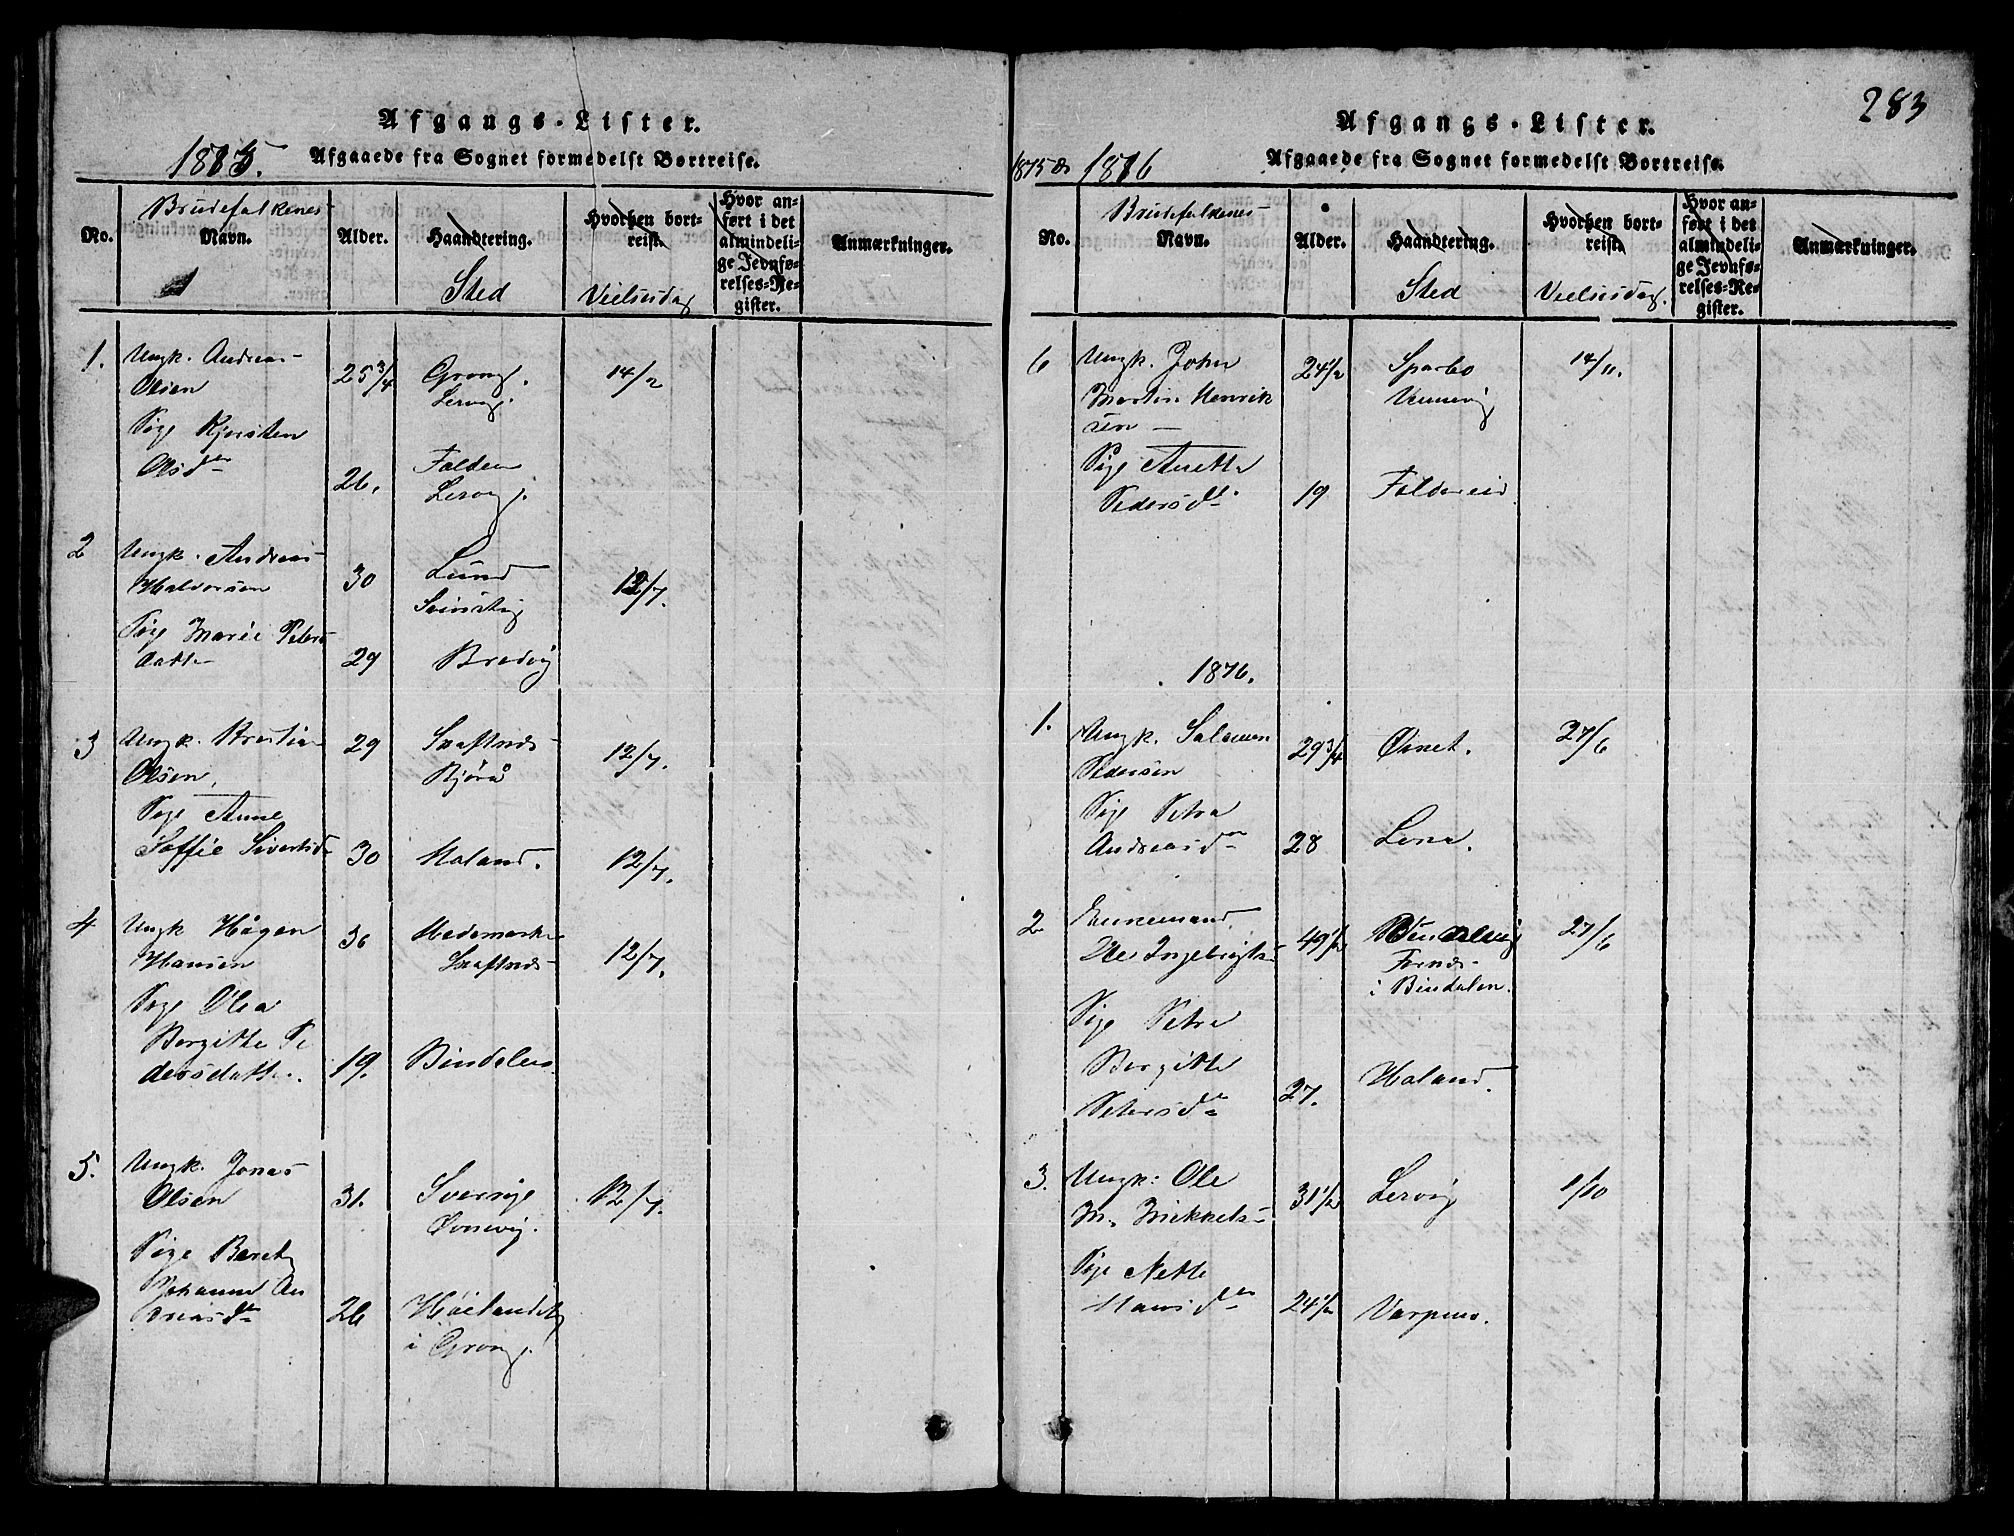 Afgangs-Lister.
1875.
Afgaaede fra Sognet formedelst Bortreise.
No.
Brudefolkenes
Navn.
Alder.
Haandtering.
Sted
Hvorhen bort-
reist.
Vielsesdag
Hvor an-
ført i det
almindeli-
ge Jevnfø-
relses-Re-
gister.
Anmærkninger.
1.
Ungk. Andreas
Olsen
25 3/4
Grong.
Lervig.
14/2
Pige Kjersten
Olsdtr
26.
Folden
Lervig.
2
Ungk. Andreas
Halvorsen
30
Lund
12/7.
Pige Marie Peters
datter
29
Bredvig
3
Ungk. Kristian
Olsen
29
Skaftnes
Bjørå
12/7.
Pige Anne
Soffie Sivertsd
30
Haland.
12/7.
4
Ungk Hågen
Hansen
36
Hedemarken
Skaftnes
12/7.
Pige Olea
Bergitte Pe
dersdatter.
19.
Bindalen
5.
Ungk. Jonas
Olsen
31.
Sverrige
12/7.
Pige Beret
Johanna An
dreasdtr
26
Høilandet
i Grong.
283
Afgangs-Lister.
1875 &
1876
Afgaaede fra Sognet formedelst Bortreise.
No.
Brudefolkenes
Navn.
Alder.
Haandtering.
Sted
Hvorhen bort-
reist.
Vielsesdag.
Hvor an-
ført i det
almindeli-
ge Jevnfø-
relses-Re-
gister.
Anmærkninger.
6
Ungk. John
Martin Henrik
sen
24 1/2
Sparbo
Vennevig
14/11.
Pige Anette
Pedersdt.
19
Foldereid
1876.
1.
Ungk. Salamon
Pedersen
29 3/4
Ørnet.
27/6
Pige Petra
Andreasdtr
28
Lona.
2
Enkemand
Ole Ingebrigts
49 1/2
Fornes
i Bindalen.
27/6
Pige Petra
Bergitte
Petersdtr
27.
Haland.
3.
Ungk: Ole
M. Mikkels
31 1/2
Lervig
1/10
Pige Nette
Hansdtr
24 1/2
Varpmo.